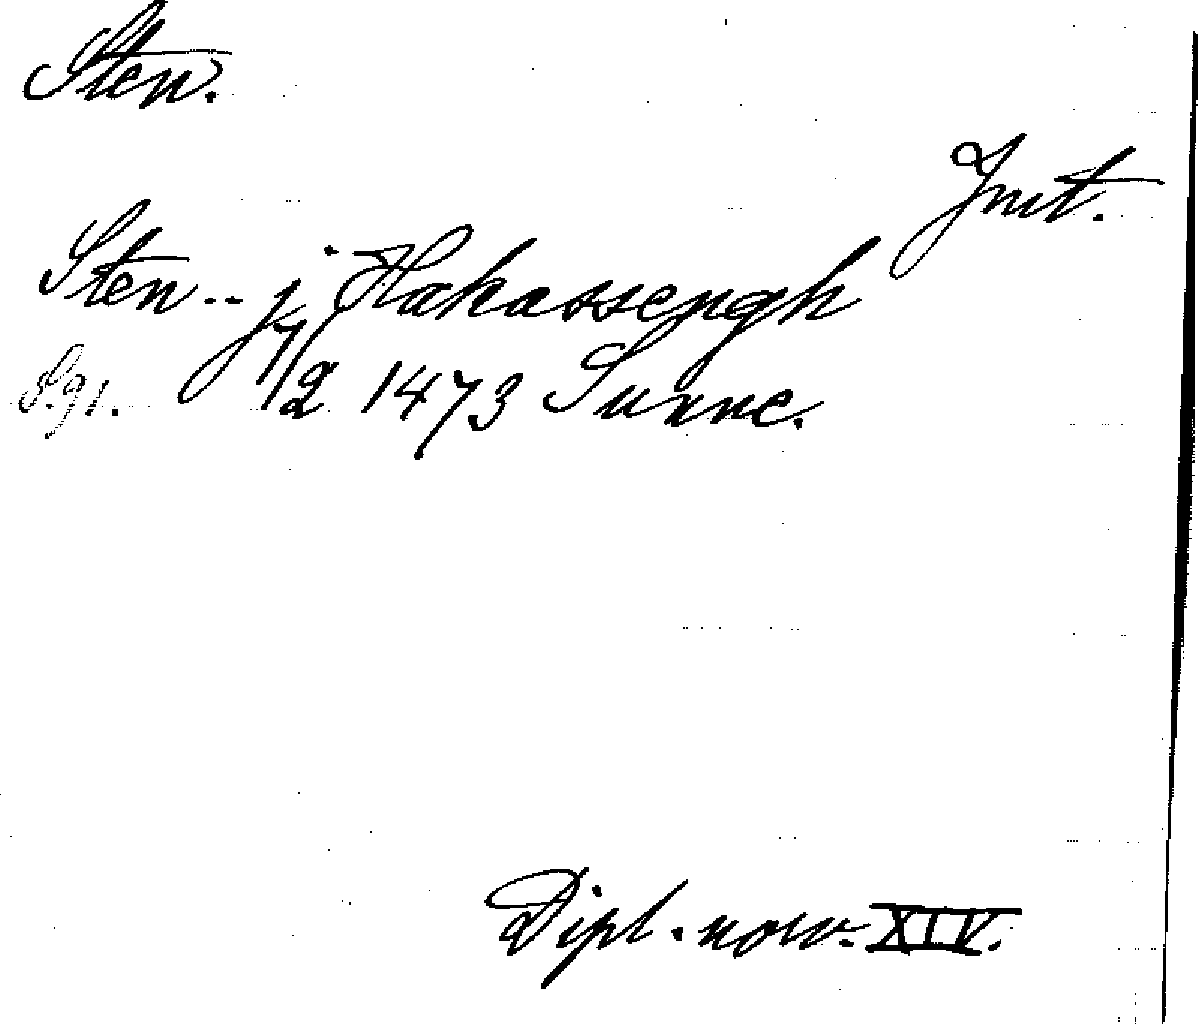 Sten.
Jmt.
Sten -- j Hakassengh
S. 91. 7/2 1473 Sunne.
Dipl. norv. XIV.